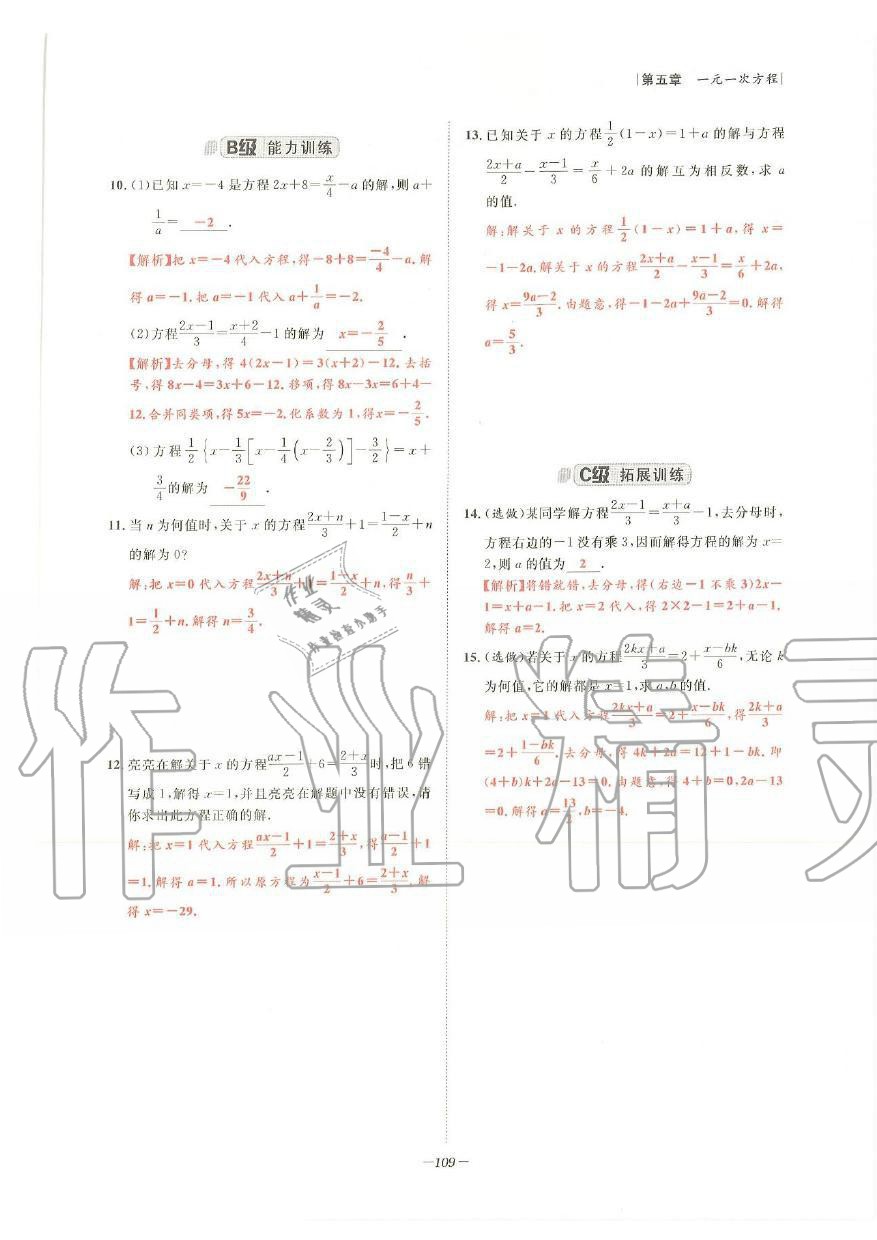 第五章 一元一次方程
B级 能力训练
10.(1)已知 x=-4 是方程 2x+8=x/4-a 的解,则 a+
1/a= -2 .
【解析】把 x=-4 代入方程,得-8+8=-4/4-a.解
得 a=-1.把 a=-1 代入 a+1/a=-2.
(2)方程(2x-1)/3=(x+2)/4-1 的解为 x=-2/5 .
【解析】去分母,得 4(2x-1)=3(x+2)-12.去括
号,得 8x-4=3x+6-12.移项,得 8x-3x=6+4-
12.合并同类项,得 5x=-2.化系数为 1,得x=-2/5.
(3)方程 1/2{x-1/3[x-1/4(x-2/3)]-3/2}=x+
3/4 的解为 -22/9 .
11.当 n 为何值时,关于 x 的方程(2x+n)/3+1=(1-x)/2+n
的解为 0?
解:把 x=0 代入方程(2x+n)/3+1=(1-x)/2+n,得 n/3+
1=1/2+n.解得 n=3/4.
12.亮亮在解关于 x 的方程(ax-1)/2+6=(2+x)/3时,把 6 错
写成 1,解得 x=1,并且亮亮在解题中没有错误,请
你求出此方程正确的解.
解:把 x=1 代入方程(ax-1)/2+1=(2+x)/3,得(a-1)/2+1
=1.解得 a=1.所以原方程为(x-1)/2+6=(2+x)/3,解
得 x=-29.
13.已知关于 x 的方程 1/2(1-x)=1+a 的解与方程
(2x+a)/2-(x-1)/3=x/6+2a 的解互为相反数,求 a
的值.
解:解关于 x 的方程 1/2(1-x)=1+a,得 x=
-1-2a.解关于 x 的方程(2x+a)/2-(x-1)/3=x/6+2a,
得 x=(9a-2)/3.由题意,得-1-2a+(9a-2)/3=0.解得
a=5/3.
C级 拓展训练
14.(选做)某同学解方程(2x-1)/3=(x+a)/3-1,去分母时,
方程右边的-1 没有乘 3,因而解得方程的解为 x=
2,则 a 的值为 2 .
【解析】将错就错,去分母,得(右边-1 不乘 3)2x-
1=x+a-1.把 x=2 代入,得 2×2-1=2+a-1.
解得 a=2.
15.(选做)若关于 x 的方程(2kx+a)/3=2+(x-bk)/6,无论 k
为何值,它的解都是 x=1,求 a,b的值.
解:把 x=1 代入方程(2kx+a)/3=2+(x-bk)/6,得(2k+a)/3
=2+(1-bk)/6.去分母,得 4k+2a=12+1-bk.即
(4+b)k+2a-13=0.由题意,得 4+b=0,2a-13
=0.解得 a=13/2,b=-4.
作业精灵
作业
精灵
-109-